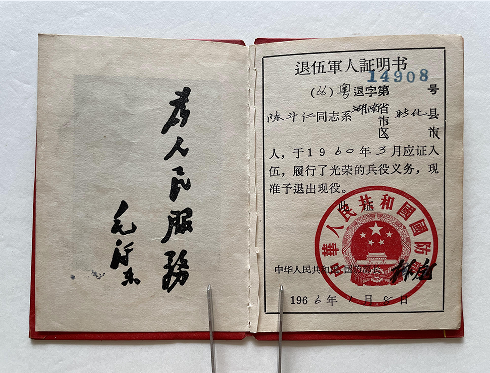 为人民服務
毛泽东
退伍軍人証明书
14908
(66)粤退字第 号
陈斗仁同志系湖南省市区 县市
人，于1960年3月应証入
伍，履行了光荣的兵役义务，现
准予退出现役。
中華人民共和國國防
中华人民共和
林彪
1966年 月8日